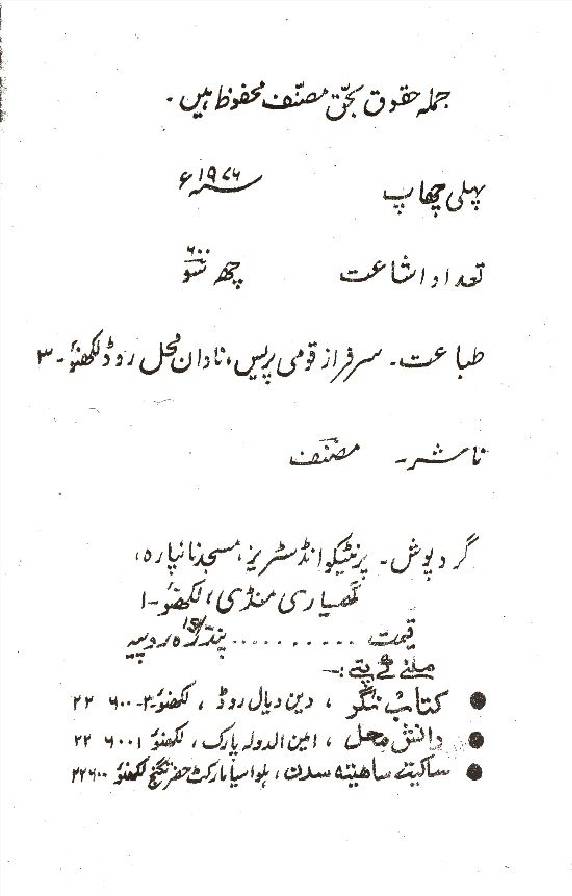 جملہ حقوق بحقِ مصنّف محفوظ ہیں۔
پہلی چھاپ ۱۹۷۶ سنہ ء
تعداد اشاعت ۶۰۰ چھ سَو
طباعت۔ سرفراز قومی پریس، نادان محل روڈ لکھنؤ۔ ۳
ناشر۔ مصنّف
گرد پوش۔ پرنٹیکو انڈسٹریز، مسجد نانپارہ،
گھسیاری منڈی، لکھنؤ۔۱
قیمت .......... 15/ پندرہ روپیہ
ملنے کے پتے :۔
● کتاب نگر ، دین دیال روڈ ، لکھنؤ۔۳۔ ۲۲۶۰۰
● دانش محل ، امین الدولہ پارک، لکھنؤ ۲۲۶۰۰۱
● ساکیتہ ساھیتہ سدن، ہلواسیا مارکٹ حضرت گنج لکھنؤ ۲۲۶۰۰